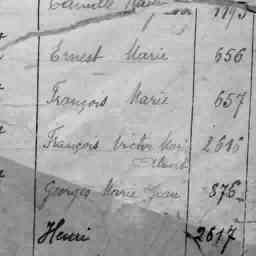 Camille Marie 1193
Ernest Marie 656
François Marie 657
François Victor Marie 2616
Georges Marie Jean 876
Henri 2617